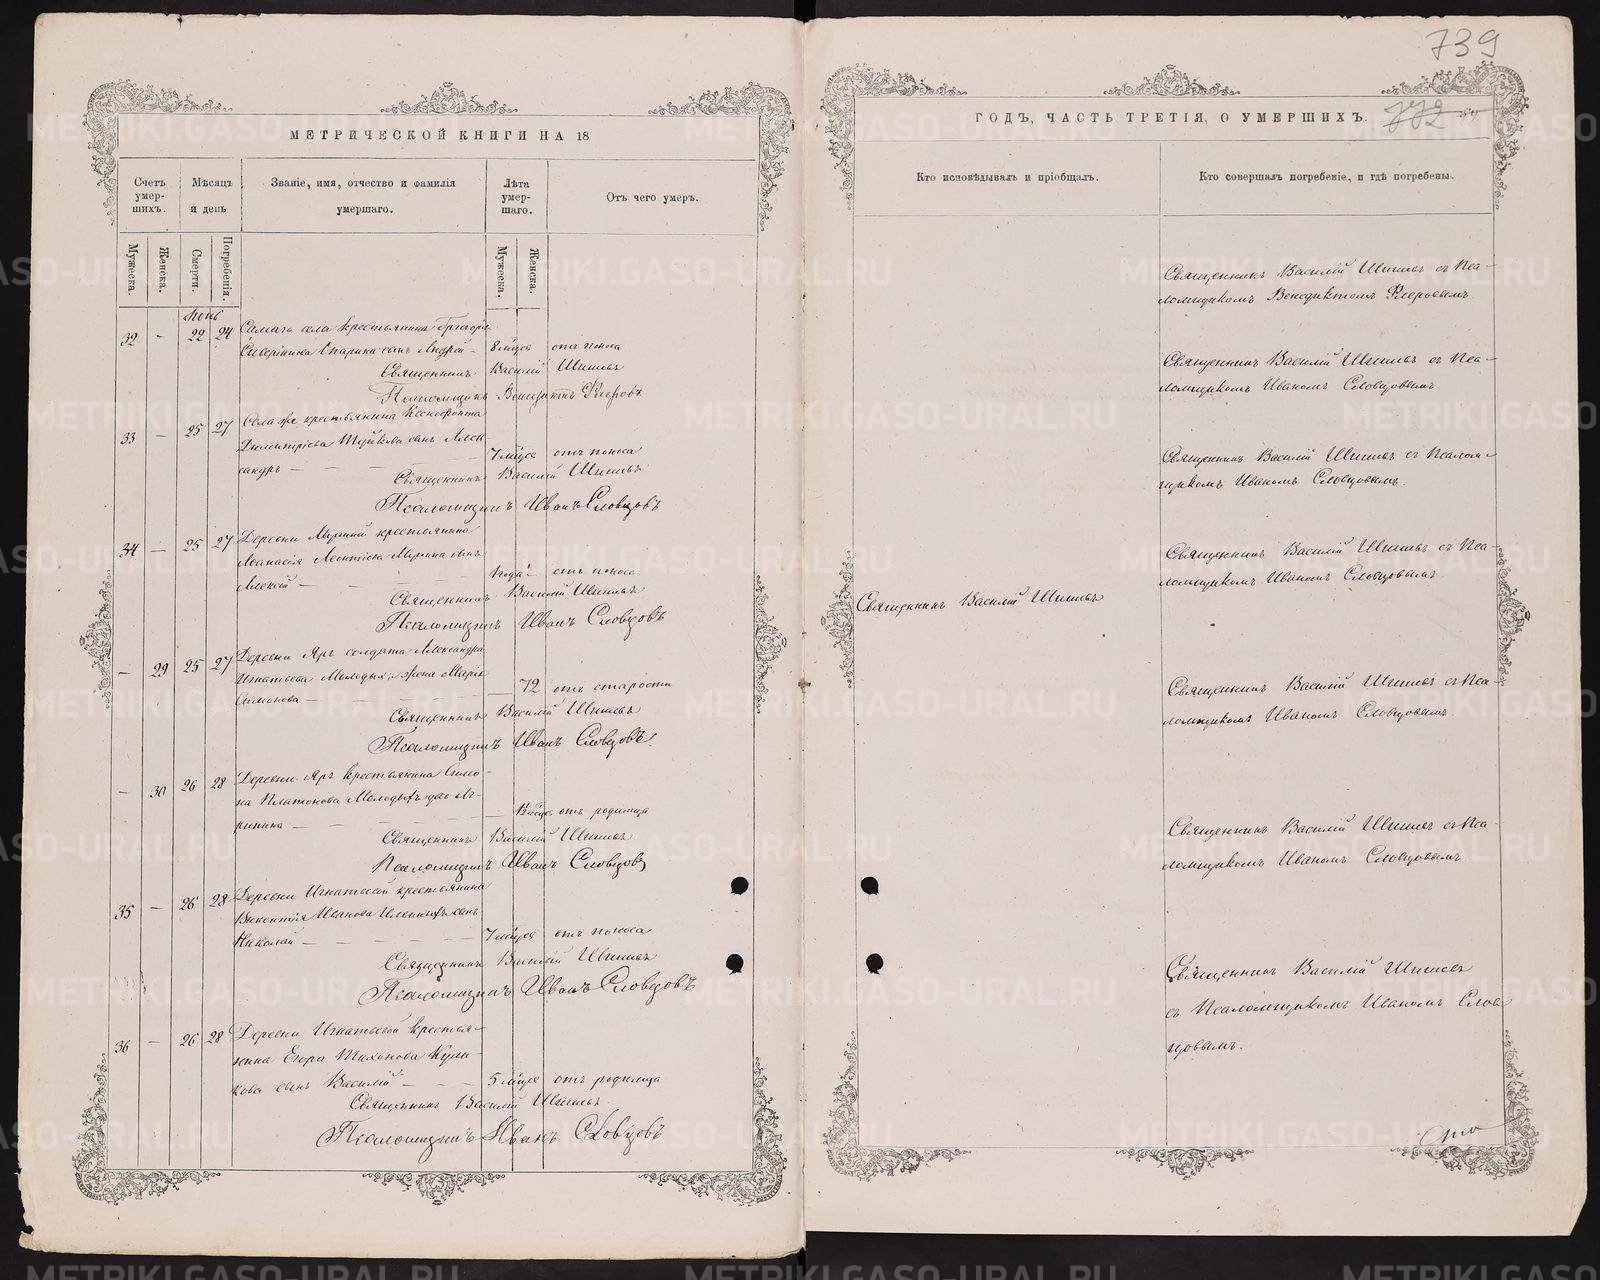 739
МЕТРИЧЕСКОЙ КНИГИ НА 18
Счетъ умер-шихъ.
Мѣсяцъ и день
Званіе, имя, отчество и фамилія умершаго.
Лѣта умер-шаго.
Отъ чего умеръ.
Мужеска.
Женска.
Смерти.
Погребенія.
Мужеска.
Женска.
32 — 22 24 Самаго села крестьянина Григорія
сынъ Андрей — 8 мѣсце отъ поноса
Священникъ Василій Шишевъ
Псаломщикъ Венедиктъ Флеровъ
33 — 25 27 Села же крестьянина Ксенофонта
Димитріева сынъ Алек
сандръ — — — — 7 мѣсце отъ поноса
Священникъ Василій Шишевъ
Псаломщикъ Иванъ Словцовъ
34 — 25 27 Деревни крестьянина
Аѳанасія Леонтіева Мурзина сынъ
Алексѣй — — — 1 года — отъ поноса
Священникъ Василій Шишевъ
Псаломщикъ Иванъ Словцовъ
— 29 25 27 Деревни Яръ солдата Александра
Игнатьева Молодыхъ жена Марія
Симонова — — — 72 отъ старости
Священникъ Василій Шишевъ
Псаломщикъ Иванъ Словцовъ
— 30 26 28 Деревни Яръ крестьянина Симо-
на Платонова Молодыхъ дочь Аг-
рипина — — — — отъ родимца
Священникъ Василій Шишевъ
Псаломщикъ Иванъ Словцовъ
35 — 26 28 Деревни Игнатьевой крестьянина
Викентія Иванова сынъ
Николай — — — — 7 мѣсце отъ поноса
Священникъ Василій Шишевъ
Псаломщикъ Иванъ Словцовъ
36 — 26 28 Деревни Игнатьевой крестья-
нина Егора Тихонова Кули-
кова сынъ Василій — — — 5 мѣсце отъ родимца
Священникъ Василій Шишевъ
Псаломщикъ Иванъ Словцовъ
ГОДЪ, ЧАСТЬ ТРЕТІЯ, О УМЕРШИХЪ.
772
Кто исповѣдывалъ и пріобщалъ.
Кто совершалъ погребеніе, и гдѣ погребены.
Священникъ Василій Шишевъ съ Пса-
ломщикомъ Венедиктомъ Флеровымъ
Священникъ Василій Шишевъ съ Пса-
ломщикомъ Иваномъ Словцовымъ
Священникъ Василій Шишевъ съ Псалом-
щикомъ Иваномъ Словцовымъ.
Священникъ Василій Шишевъ съ Пса-
ломщикомъ Иваномъ Словцовымъ
Священникъ Василій Шишевъ
Священникъ Василій Шишевъ съ Пса-
ломщикомъ Иваномъ Словцовымъ
Священникъ Василій Шишевъ съ Пса-
ломщикомъ Иваномъ Словцовымъ
Священникъ Василій Шишевъ
съ Псаломщикомъ Иваномъ Слов
цовымъ.
METRIKI.GASO-URAL.RU